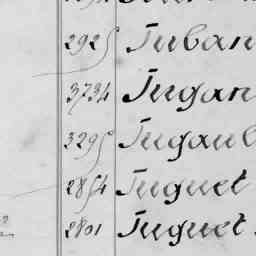 2925 Juban
3734 Jugan
3295 Jugaul
2854 Juguet
2801 Juguet